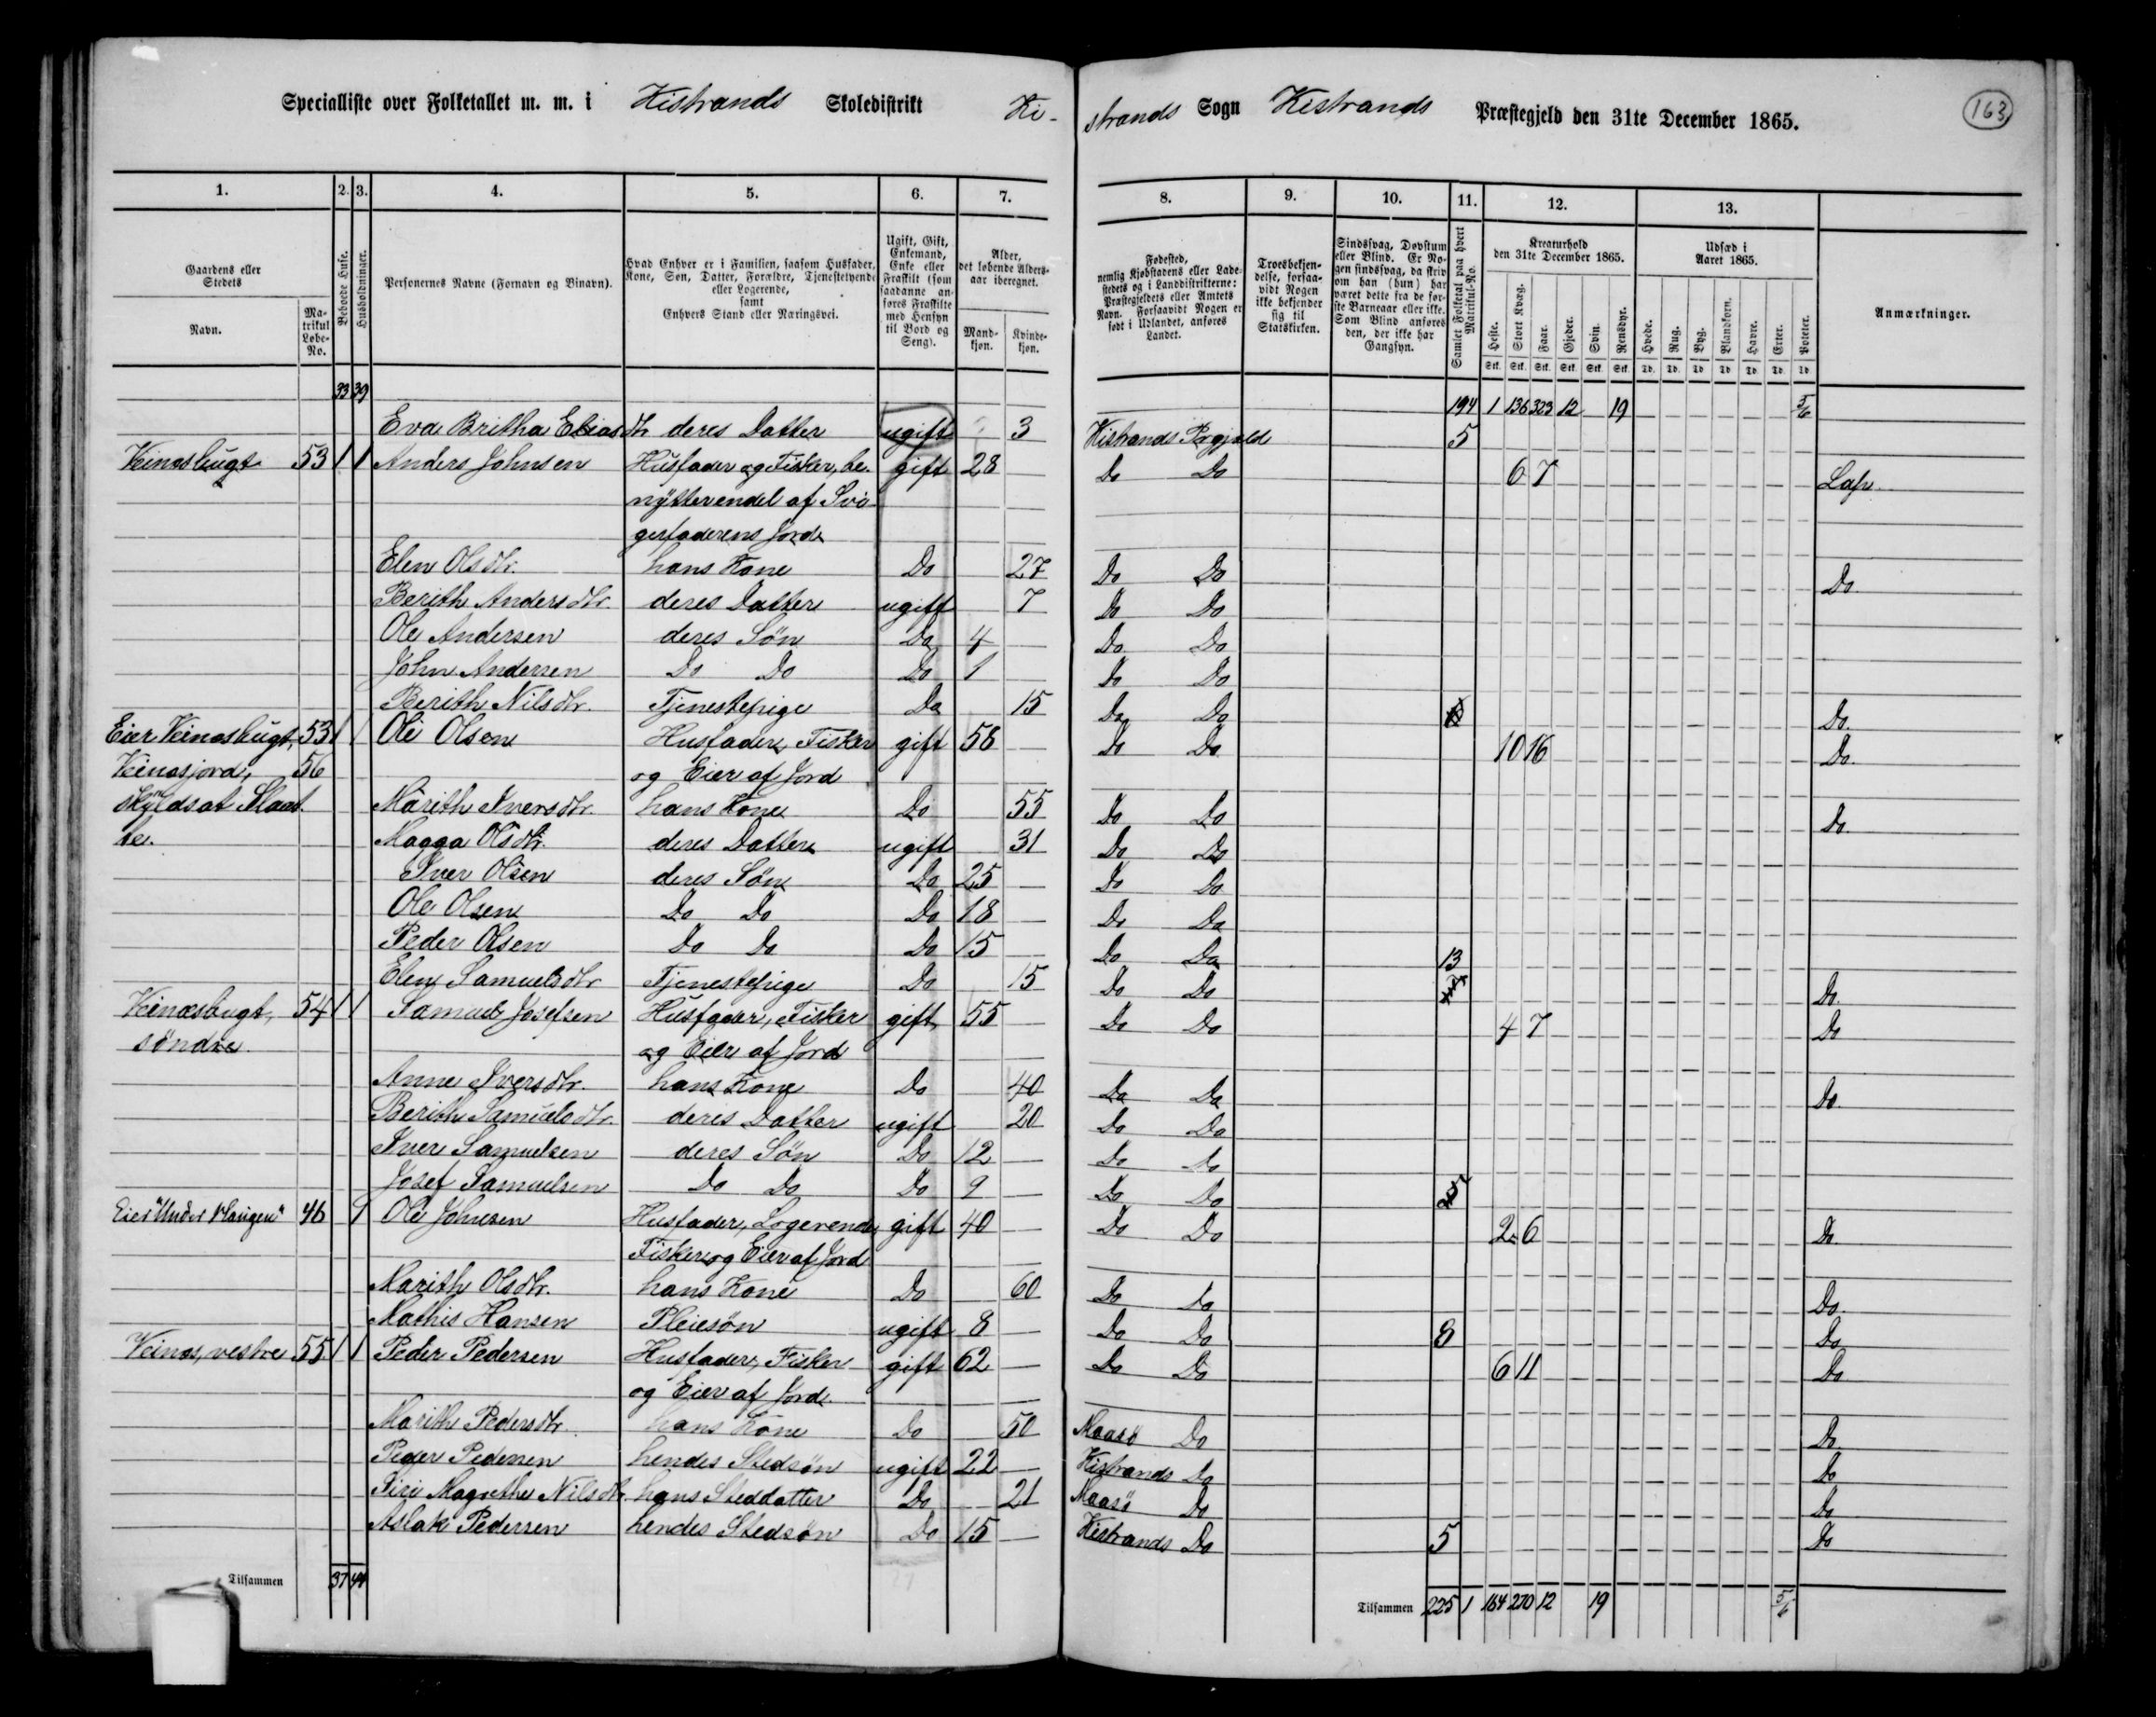 163
Specialliste over Folketallet m. m. i Kistrands Skoledistrikt Ki- strands Sogn Kistrands Præstegjeld den 31te December 1865.
1. 2. 3. 4. 5. 6. 7. 8. 9. 10. 11. 12. 13.
Gaardens eller Stedets
Navn.
Matrikul Løbe-No.
Beboede Huse.
Husholdninger.
Personernes Navne (Fornavn og Binavn).
Hvad Enhver er i Familien, saasom Husfader, Kone, Søn, Datter, Forældre, Tjenestetyende eller Logerende, samt Enhvers Stand eller Næringsvei.
Ugift, Gift, Enkemand, Enke eller Fraskilt (som saadanne anføres Fraskilte med Hensyn til Bord og Seng).
Alder, det løbende Aldersaar iberegnet.
Mandkjøn.
Kvindekjøn.
Fødested, nemlig Kjøbstadens eller Ladestedets og i Landdistrikterne: Præstegjeldets eller Amtets Navn. Forsaavidt Nogen er født i Udlandet, anføres Landet.
Troesbekjendelse, forsaavidt Nogen ikke bekjender sig til Statskirken.
Sindssvag, Døvstum eller Blind. Er Nogen sindssvag, da skriv om han (hun) har været dette fra de første Barneaar eller ikke. Som Blind anføres den, der ikke har Gangsyn.
Samlet Folketal paa hvert Matrikul-No.
Kreaturhold den 31te December 1865.
Heste. Stort Kvæg. Faar. Gjeder. Svin. Rensdyr.
Stk. Stk. Stk. Stk. Stk. Stk.
Udsæd i Aaret 1865.
Hvede. Rug. Byg. Blandkorn. Havre. Erter. Poteter.
Td. Td. Td. Td. Td. Td. Td.
Anmærkninger.
33 39 194 1 136 323 12 19 5/6
Eva Britha Eliasdtr deres Datter ugift 3 Kistrands Prgjeld 5
Veinesbugt 53 1 1 Anders Johnsen Husfader og Fisker, be- gift 28 Do Do 6 7 Lap.
nytter endel af Svi-
gerfaderens Jord
Elen Olsdtr. hans Kone Do 27 Do Do Do.
Berith Andersdtr. deres Datter ugift 7 Do Do
Ole Andersen deres Søn Do 4 Do Do
John Andersen Do Do Do 1 Do Do
Berith Nilsdtr. Tjenestepige Do 15 Do Do Do.
Eier Veinesbugt, 53 1 1 Ole Olsen Husfader, Fisker gift 58 Do Do 10 16 Do.
Veinesjord, 56 og Eier af Jord
Marith Iversdtr. hans Kone Do 55 Do Do Do.
Magga Olsdtr. deres Datter ugift 31 Do Do
Iver Olsen deres Søn Do 25 Do Do
Ole Olsen Do Do Do 18 Do Do
Peder Olsen Do Do Do 15 Do Do 13
Elen Samuelsdtr Tjenestepige Do 15 Do Do Do.
Veinesbugt, 54 1 1 Samuel Josefsen Husfader, Fisker gift 55 Do Do 4 7 Do
søndre. og Eier af Jord
Anne Iversdtr. hans Kone Do 40 Do Do Do.
Berith Samuelsdtr. deres Datter ugift 20 Do Do
Iver Samuelsen deres Søn Do 12 Do Do
Josef Samuelsen Do Do Do 9 Do Do 5
Eier "Under Klasigen" 46 1 Ole Johnsen Husfader, Logerende gift 40 Do Do 2 6 Do.
Fisker og Eier af Jord
Marith Olsdtr. hans Kone Do 60 Do Do Do.
Mathis Hansen Pleiesøn ugift 8 Do Do 8 Do
Veines, vestre 55 1 1 Peder Pedersen Husfader, Fisker gift 62 Do Do 6 11 Do
og Eier af Jord
Marith Pedersdtr. hans Kone Do 50 Maasø Do Do
Peder Pedersen hendes Stedsøn ugift 22 Kistrands Do Do
Siri Magrethe Nilsdtr. hans Steddatter Do 21 Maasø Do Do
Aslak Pedersen hendes Stedsøn Do 15 Kistrands Do 5 Do
Tilsammen 37 44 Tilsammen 225 1 164 270 12 19 5/6